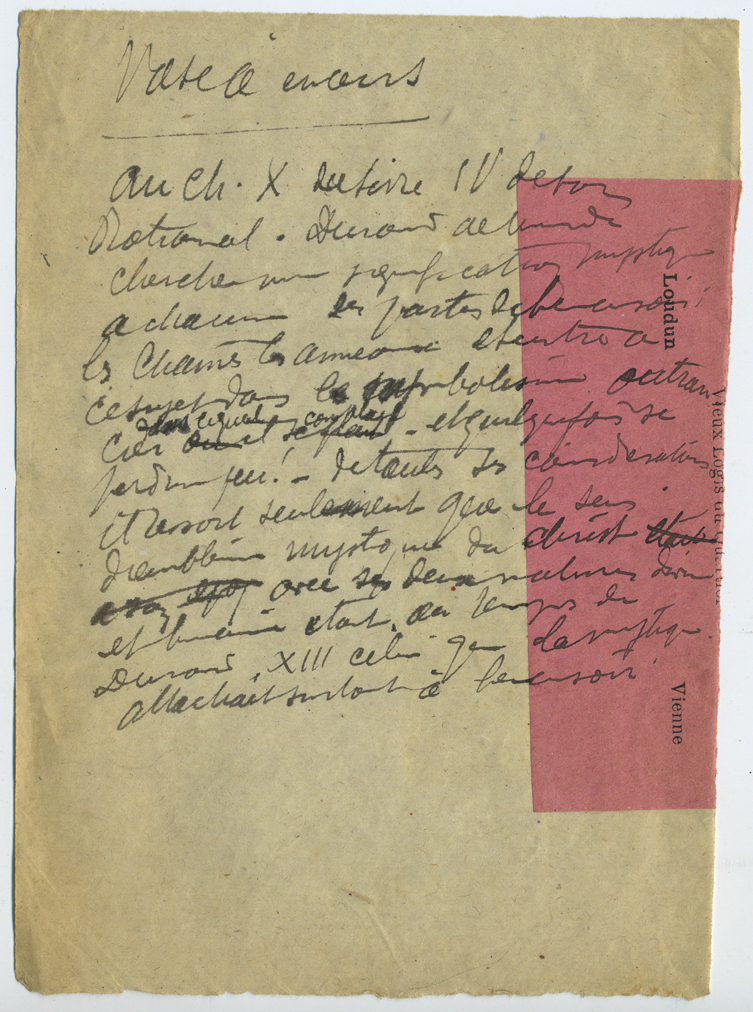 Vase à encens
au ch. X du livre IV de son
Rational. Durand de Mende
cherche une signification mystique
a chacune des parties de l'encensoir:
les chaines les anneaux et entre a
ce sujet dans le symbolisme outran
cier dans lequel il se complait - et quelquefois se
perd un peu! - de toutes ses considerations
il ressort seulement que le sens
d'emblème mystique du Christ
avec ses deux natures divine
et humaine était, au temps de
Durand, XIII celui que la mystique
attachait surtout à l'encensoir.
Loudun
Vieux Logis du
Vienne